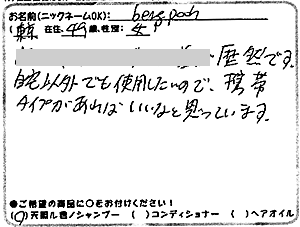 お名前(ニックネームOK): berg poch
(東京 在住、49歳、性別: 女)
歴然です。
自宅以外でも使用したいので、携帯
タイプがあればいいなと思っています。
●ご希望の商品に○をお付けください!
(○)天照ル君ノシャンプー ( )コンディショナー ( )ヘアオイル